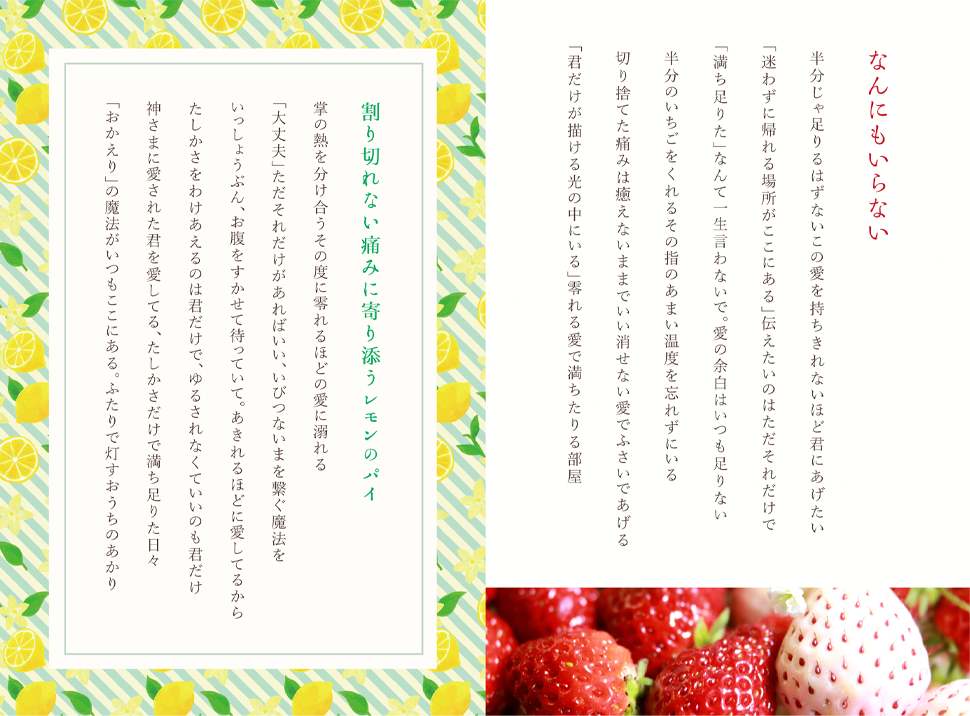 なんにもいらない
半分じゃ足りるはずないこの愛を持ちきれないほど君にあげたい
「迷わずに帰れる場所がここにある」伝えたいのはただそれだけで
「満ち足りた」なんて一生言わないで。愛の余白はいつも足りない
半分のいちごをくれるその指のあまい温度を忘れずにいる
切り捨てた痛みは癒えないままでいい消せない愛でふさいであげる
「君だけが描ける光の中にいる」零れる愛で満ちたりる部屋
割り切れない痛みに寄り添うレモンのパイ
掌の熱を分け合うその度に零れるほどの愛に溺れる
「大丈夫」ただそれだけがあればいい、いびつないまを繋ぐ魔法を
いっしょうぶん、お腹をすかせて待っていて。あきれるほどに愛してるから
たしかさをわけあえるのは君だけで、ゆるされなくていいのも君だけ
神さまに愛された君を愛してる、たしかさだけで満ち足りた日々
「おかえり」の魔法がいつもここにある。ふたりで灯すおうちのあかり